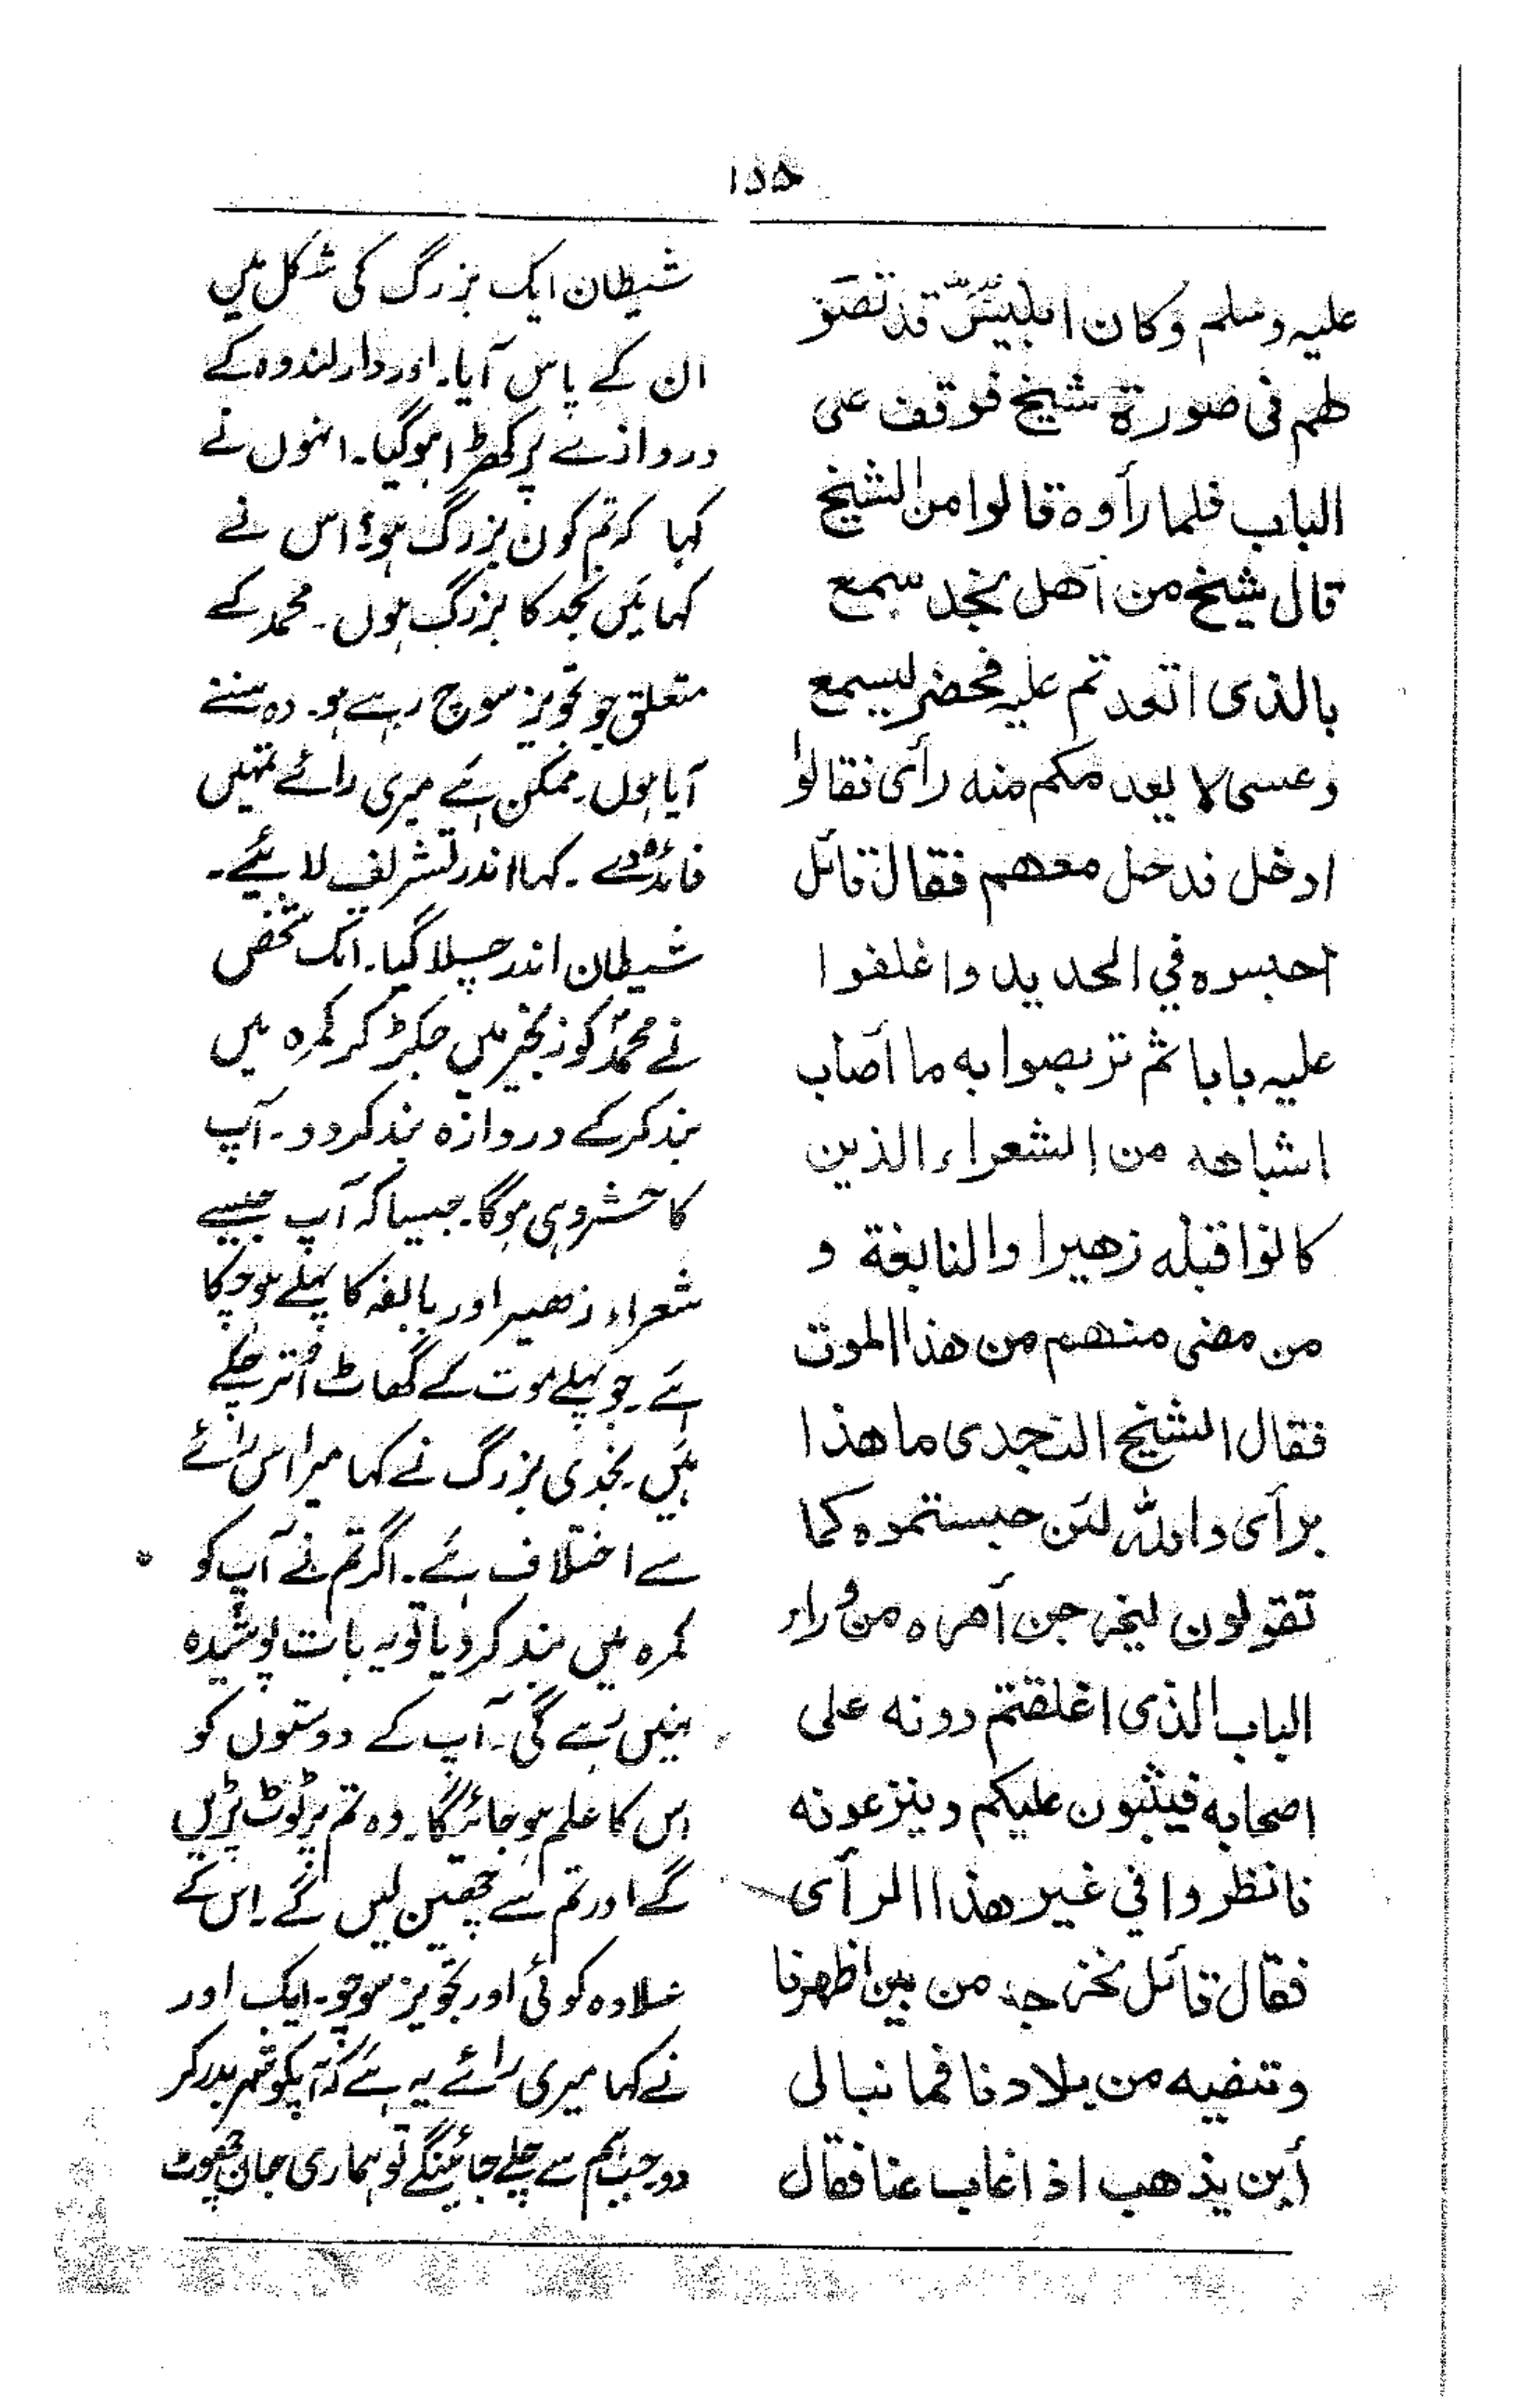 ۱۵۵
علیہ وسلم وکان ابلیس قد تصور
لھم فی صورۃ شیخ فوقف علی
الباب فلما رأوہ قالوا من الشیخ
قال شیخ من أھل نجد سمع
بالذی اتعدتم علیہ فحضر لیسمع
وعسی لا یعد مکم منه رأی فقالوا
ادخل فدخل معھم فقال قائل
احبسوہ في الحدید واغلقوا
علیہ بابا ثم تربصوا به ما أصاب
اشباھه من الشعراء الذین
کانوا قبله زھیرا والنابغة و
من مضی منھم من ھذا الموت
فقال الشیخ النجدی ما ھذا
برأی واللہ لئن حبستموہ کما
تقولون لیخرجن أمرہ من وراء
الباب الذی اغلقتم دونه علی
اصحابه فیثبون علیکم وینزعونه
فانظروا في غیر ھذا الرأی
فقال قائل نخرجه من بین اظھرنا
وتنفیه من بلادنا فما نبالی
أین یذھب اذا غاب عنا فقال
شیطان ایک بزرگ کی شکل میں
ان کے پاس آیا۔ اور دار لندوہ کے
دروازے پر کھڑا ہوگیا۔ انہوں نے
کہا کہ تم کون بزرگ ہو؟ اس نے
کہا میں نجد کا بزرگ ہوں۔ محمد کے
متعلق جو تجویز سوچ رہے ہو۔ وہ سننے
آیا ہوں۔ ممکن ہے میری رائے تمہیں
فائدہ دے۔ کہا اندر تشریف لایئے۔
شیطان اندر چلا گیا۔ ایک شخص
نے محمدؐ کو زنجیر میں جکڑ کر کمرہ میں
بند کرکے دروازہ بند کردو۔ آپ
کا حشر وہی ہوگا۔ جیسا کہ آپ جیسے
شعراء زھیر اور بالغہ کا پہلے ہوچکا
ہے۔ جو پہلے موت کے گھاٹ اُتر چکے
ہیں۔ نجدی بزرگ نے کہا میرا اس رائے
سے اختلاف ہے۔ اگر تم نے آپ کو
کمرہ میں بند کردیا تو یہ بات پوشیدہ
نہیں رہے گی۔ آپ کے دوستوں کو
اس کا علم ہو جائیگا۔ وہ تم پر ٹوٹ پڑیں
گے اور تم سے چھین لیں گے۔ اس کے
علاوہ کوئی اور تجویز سوچو۔ ایک اور
نے کہا میری رائے یہ ہے کہ آپکو شہر بدر کر
دو جب ہم سے چلے جائینگے تو ہماری جان چھوٹ